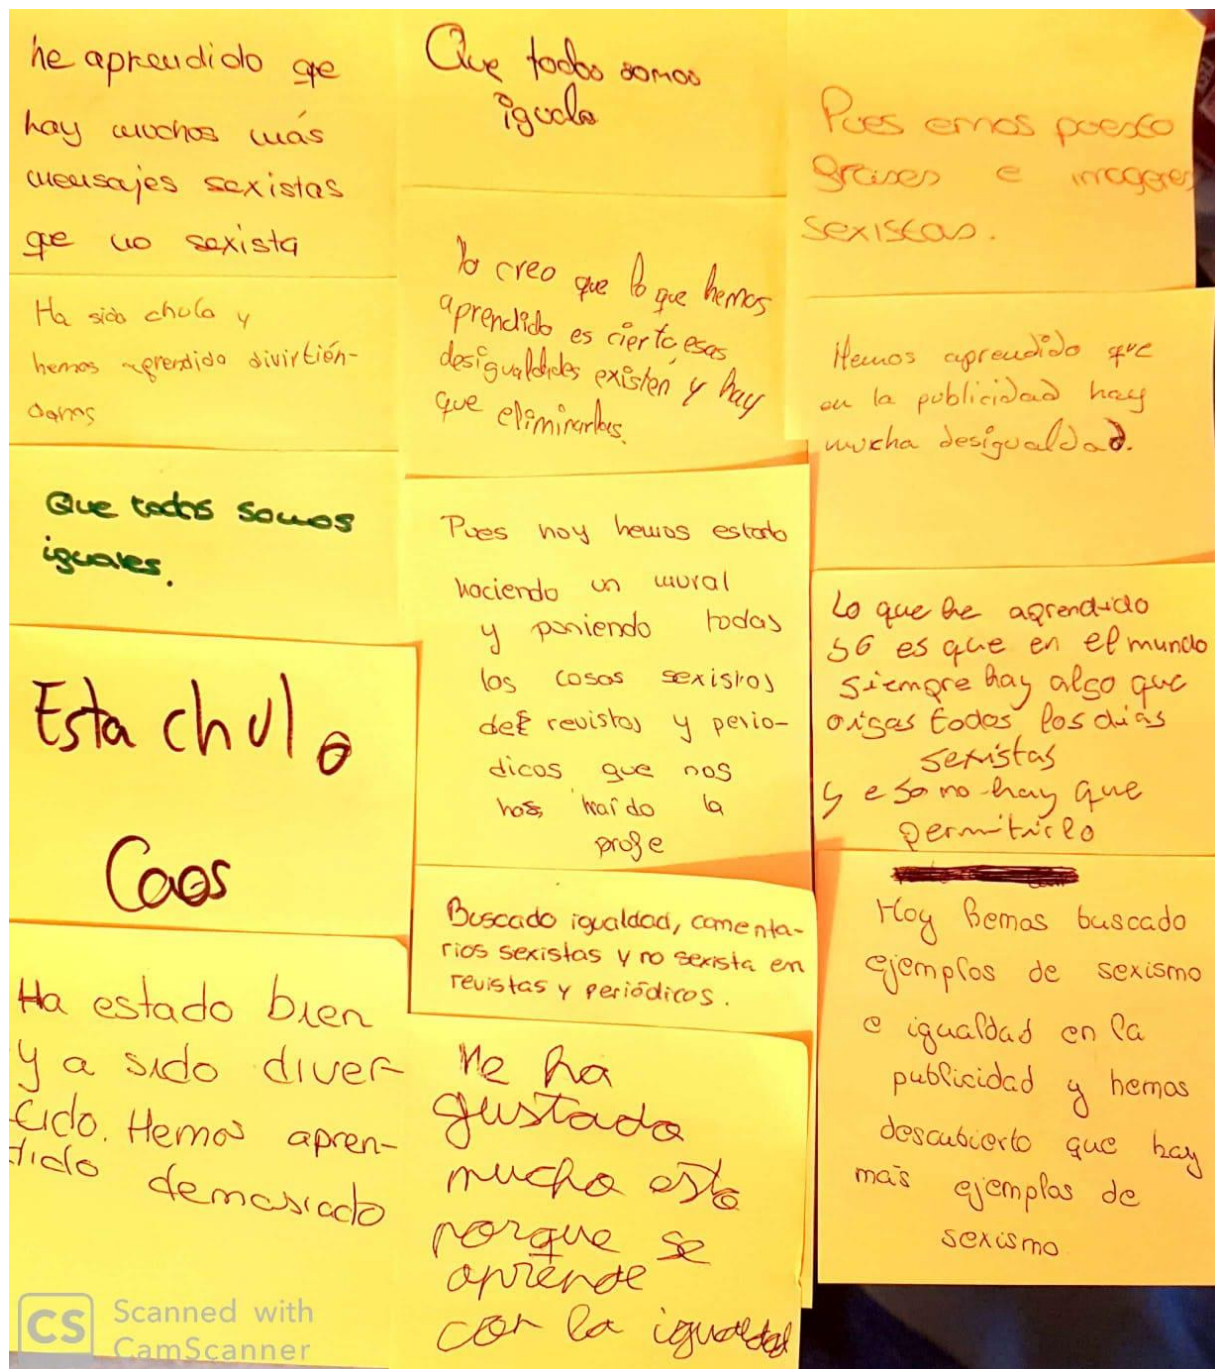 he aprendido qe
hay muchos más
mensajes sexistas
qe no sexista
Ha sido chula y
hemos aprendido divirtién-
donos
Que todos somos
iguales.
Esta chulo
Caos
Ha estado bien
y a sido diver-
tido. Hemos apren-
dido demasiado
Que todos somos
iguale
Yo creo que lo que hemos
aprendido es cierto, esas
desigualdades existen y hay
que eliminarlas.
Pues hoy hemos estado
haciendo un mural
y poniendo todas
las cosas sexistas
de revistas y perio-
dicos que nos
has traído la
profe
Buscado igualdad, comenta-
rios sexistas y no sexista en
revistas y periódicos.
Me ha
gustado
mucho esto
porque se
aprende
con la igualdad
Pues emos puesto
frases e imagenes
sexistas.
Hemos aprendido que
en la publicidad hay
mucha desigualdad.
Lo que he aprendido
es que en el mundo
siempre hay algo que
oigas todos los días
sexistas
y eso no hay que
permitirlo
Hoy hemos buscado
ejemplos de sexismo
e igualdad en la
publicidad y hemos
descubierto que hay
más ejemplos de
sexismo
CS Scanned with
CamScanner